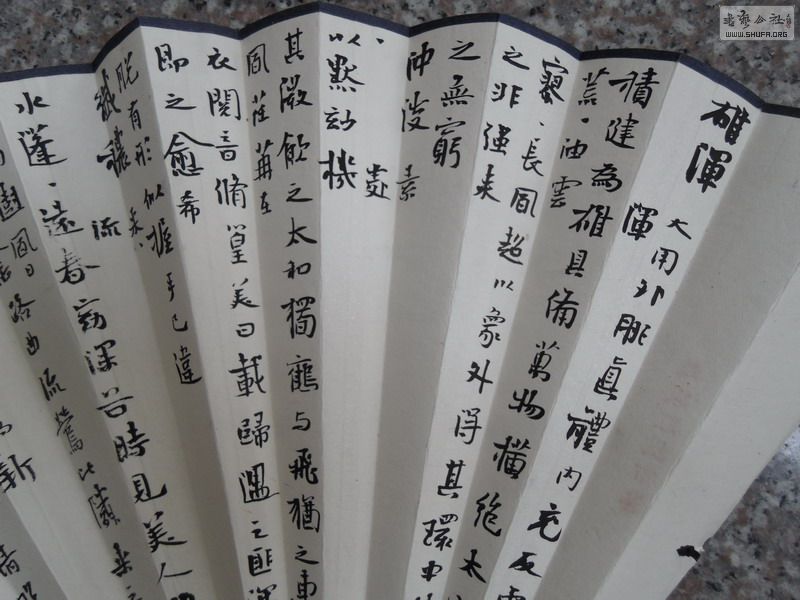 雄渾
大用外腓真體內充反虛
渾
積健為雄具備萬物橫絕太
荒、油雲
寥、長風超以象外得其環中
之非強來
之無窮
沖淡
素
處
以默妙機
其微飲之太和獨鶴與飛猶之惠
風荏苒在
衣閱音脩篁美曰載歸遇之匪深
即之愈希
脫有形似握手已違
纖穠
采、
流
水蓬、遠春窈深谷時見美人
樹風日
路曲流鶯比鄰乘
新
書藝公社
WWW.SHUFA.ORG